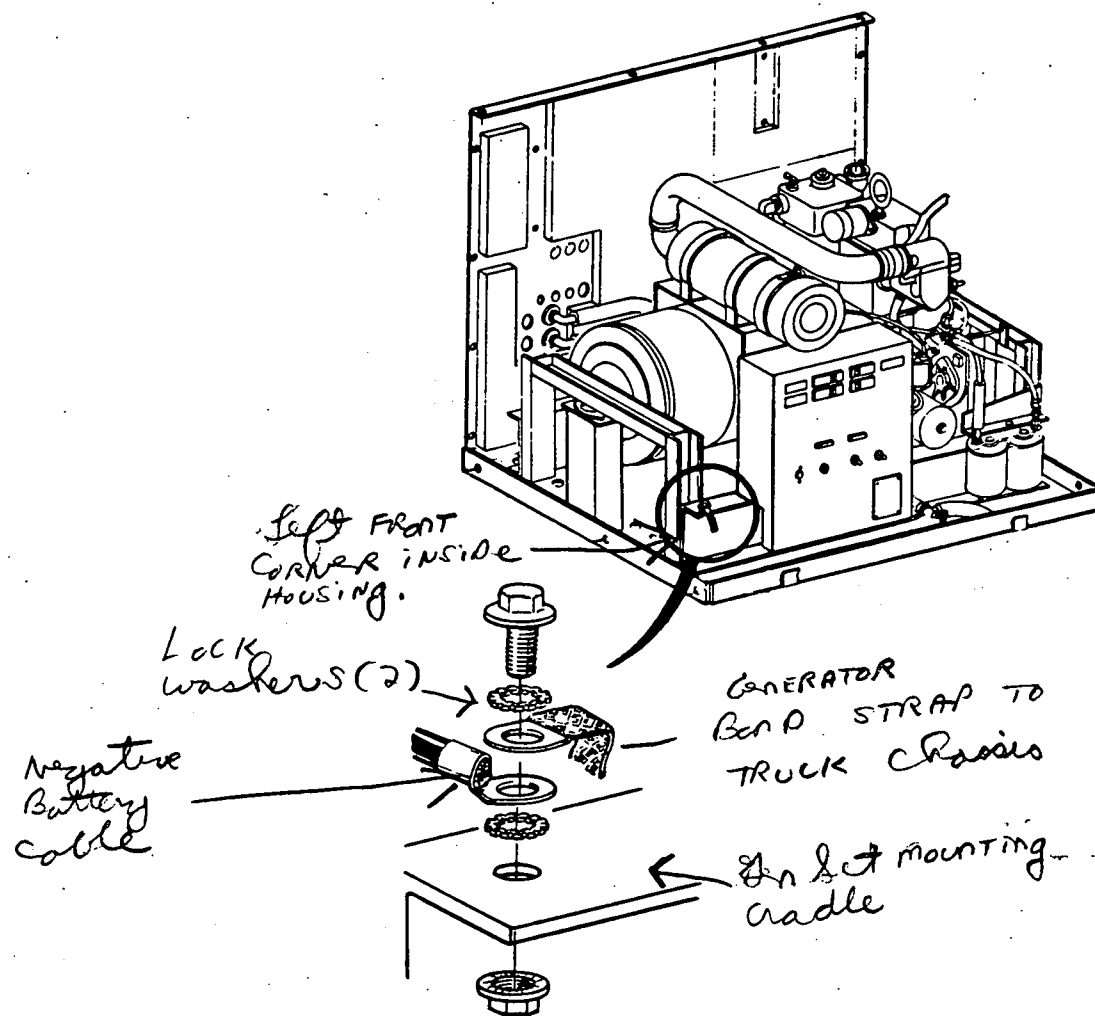 Left FRONT
CORNER inside
Housing.
Lock
washers (2)
GENERATOR
BOND STRAP TO
TRUCK Chassis
Negative
Battery
Cable
Gen Set mounting
cradle